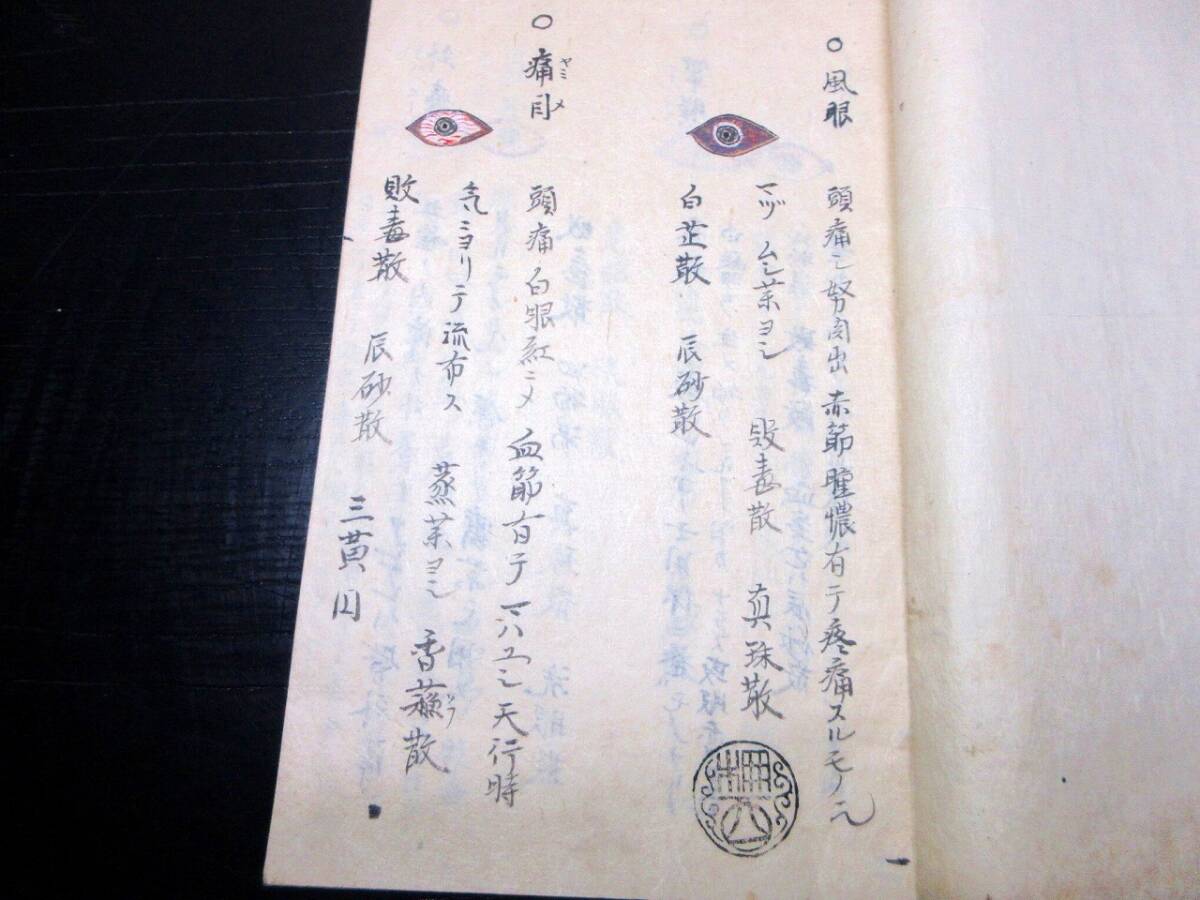 ○風眼
頭痛シ努肉出赤節腫濃有テ疼痛スルモノ也
マヅムシ茶ヨシ 敗毒散 真珠散
白芷散 辰砂散
○痛目
ヤミメ
頭痛白眼紅ニメ血筋有テ
天行時
気ニヨリテ流布ス 蒸茶ヨシ 香蘓散
敗毒散 辰砂散 三黄円